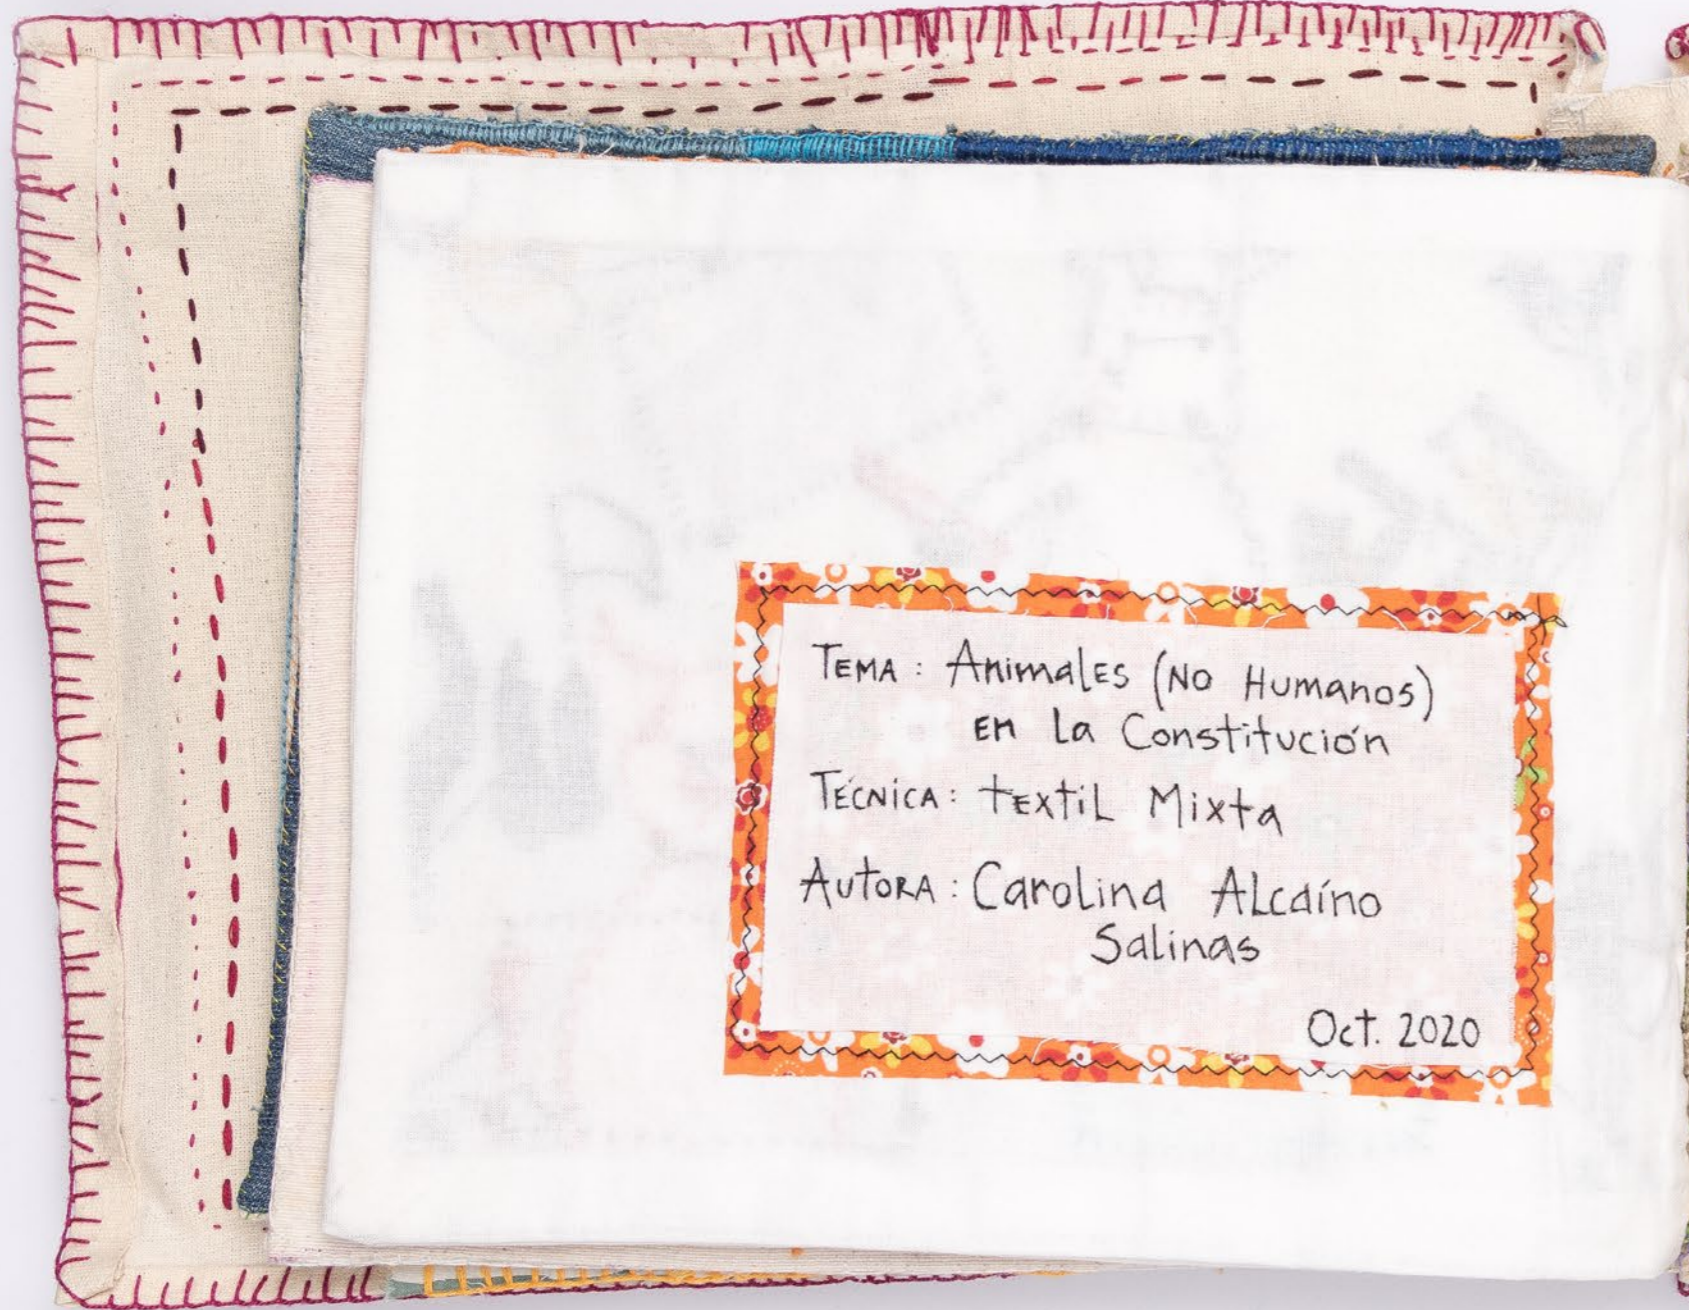 TEMA: Animales (No Humanos)
en La Constitución
TÉCNICA: Textil Mixta
AUTORA: Carolina Alcaíno
Salinas
Oct. 2020